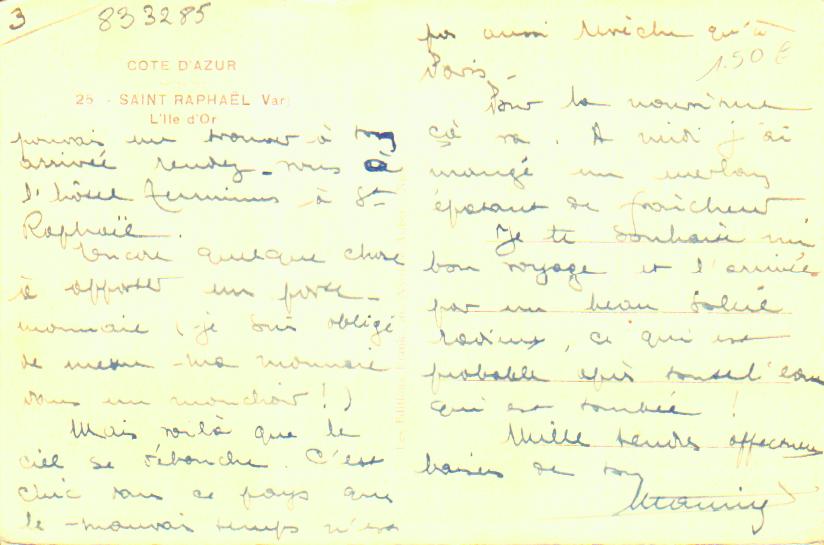 3
833285
COTE D'AZUR
25 - SAINT RAPHAËL Var
L'Ile d'Or
pouvais me trouver à ton
arrivée rendez-vous à
l'hôtel Terminus à St
Raphaël.
Encore quelque chose
à apporter un porte-
monnaie (je suis obligé
de mettre ma monnaie
dans un mouchoir!)
Mais voilà que le
ciel se débouche. C'est
chic dans ce pays que
le mauvais temps n'est
pas aussi revêche qu'à
Paris.
1.50 €
Pour la nourriture
çà va. A midi j'ai
mangé un merlan
épatant de fraîcheur
Je te souhaite un
bon voyage et l'arrivée
par un beau soleil
radieux, ce qui est
probable après toute l'eau
qui est tombée!
Mille tendres affectueux
baisers de ton